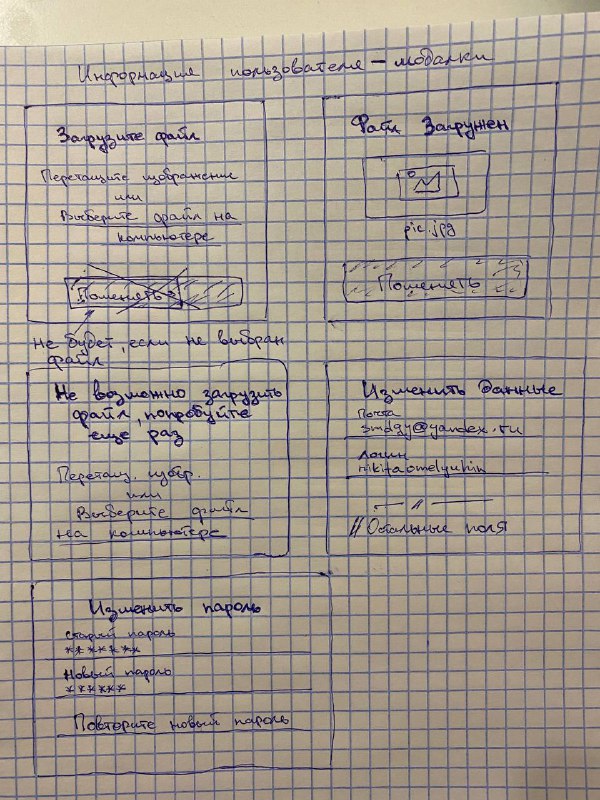 Информация пользователя – модалки
Загрузите файл
Перетащите изображение
или
Выберите файл на
компьютере
Поменять
не будет, если не выбран
файл
Файл Загружен
pic.jpg
Поменять
Не возможно загрузить
файл, попробуйте
еще раз
Перетащ. избр.
или
Выберите файл
на компьютере
Изменить данные
Почта
smdgy@yandex.ru
логин
nikitaomelyuhin
— // —
// Остальные поля
Изменить пароль
старый пароль
*******
Новый пароль
******
Повторите новый пароль